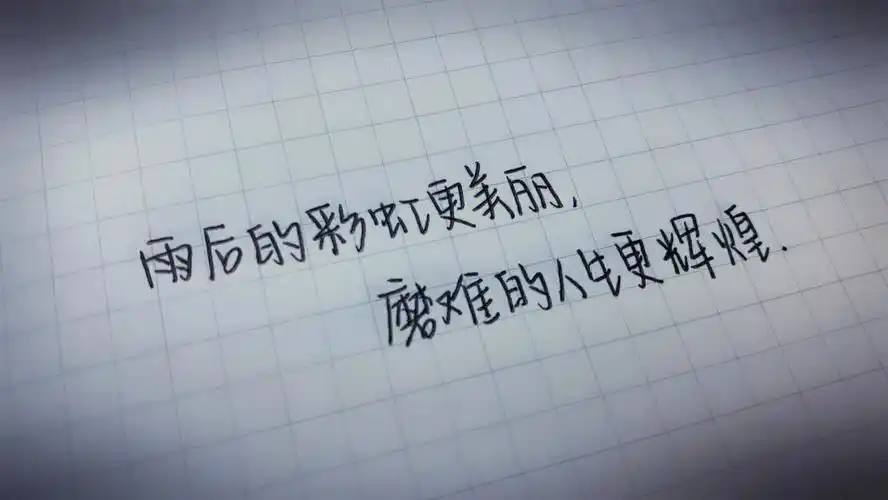 雨后的彩虹更美丽,
磨难的人生更辉煌.